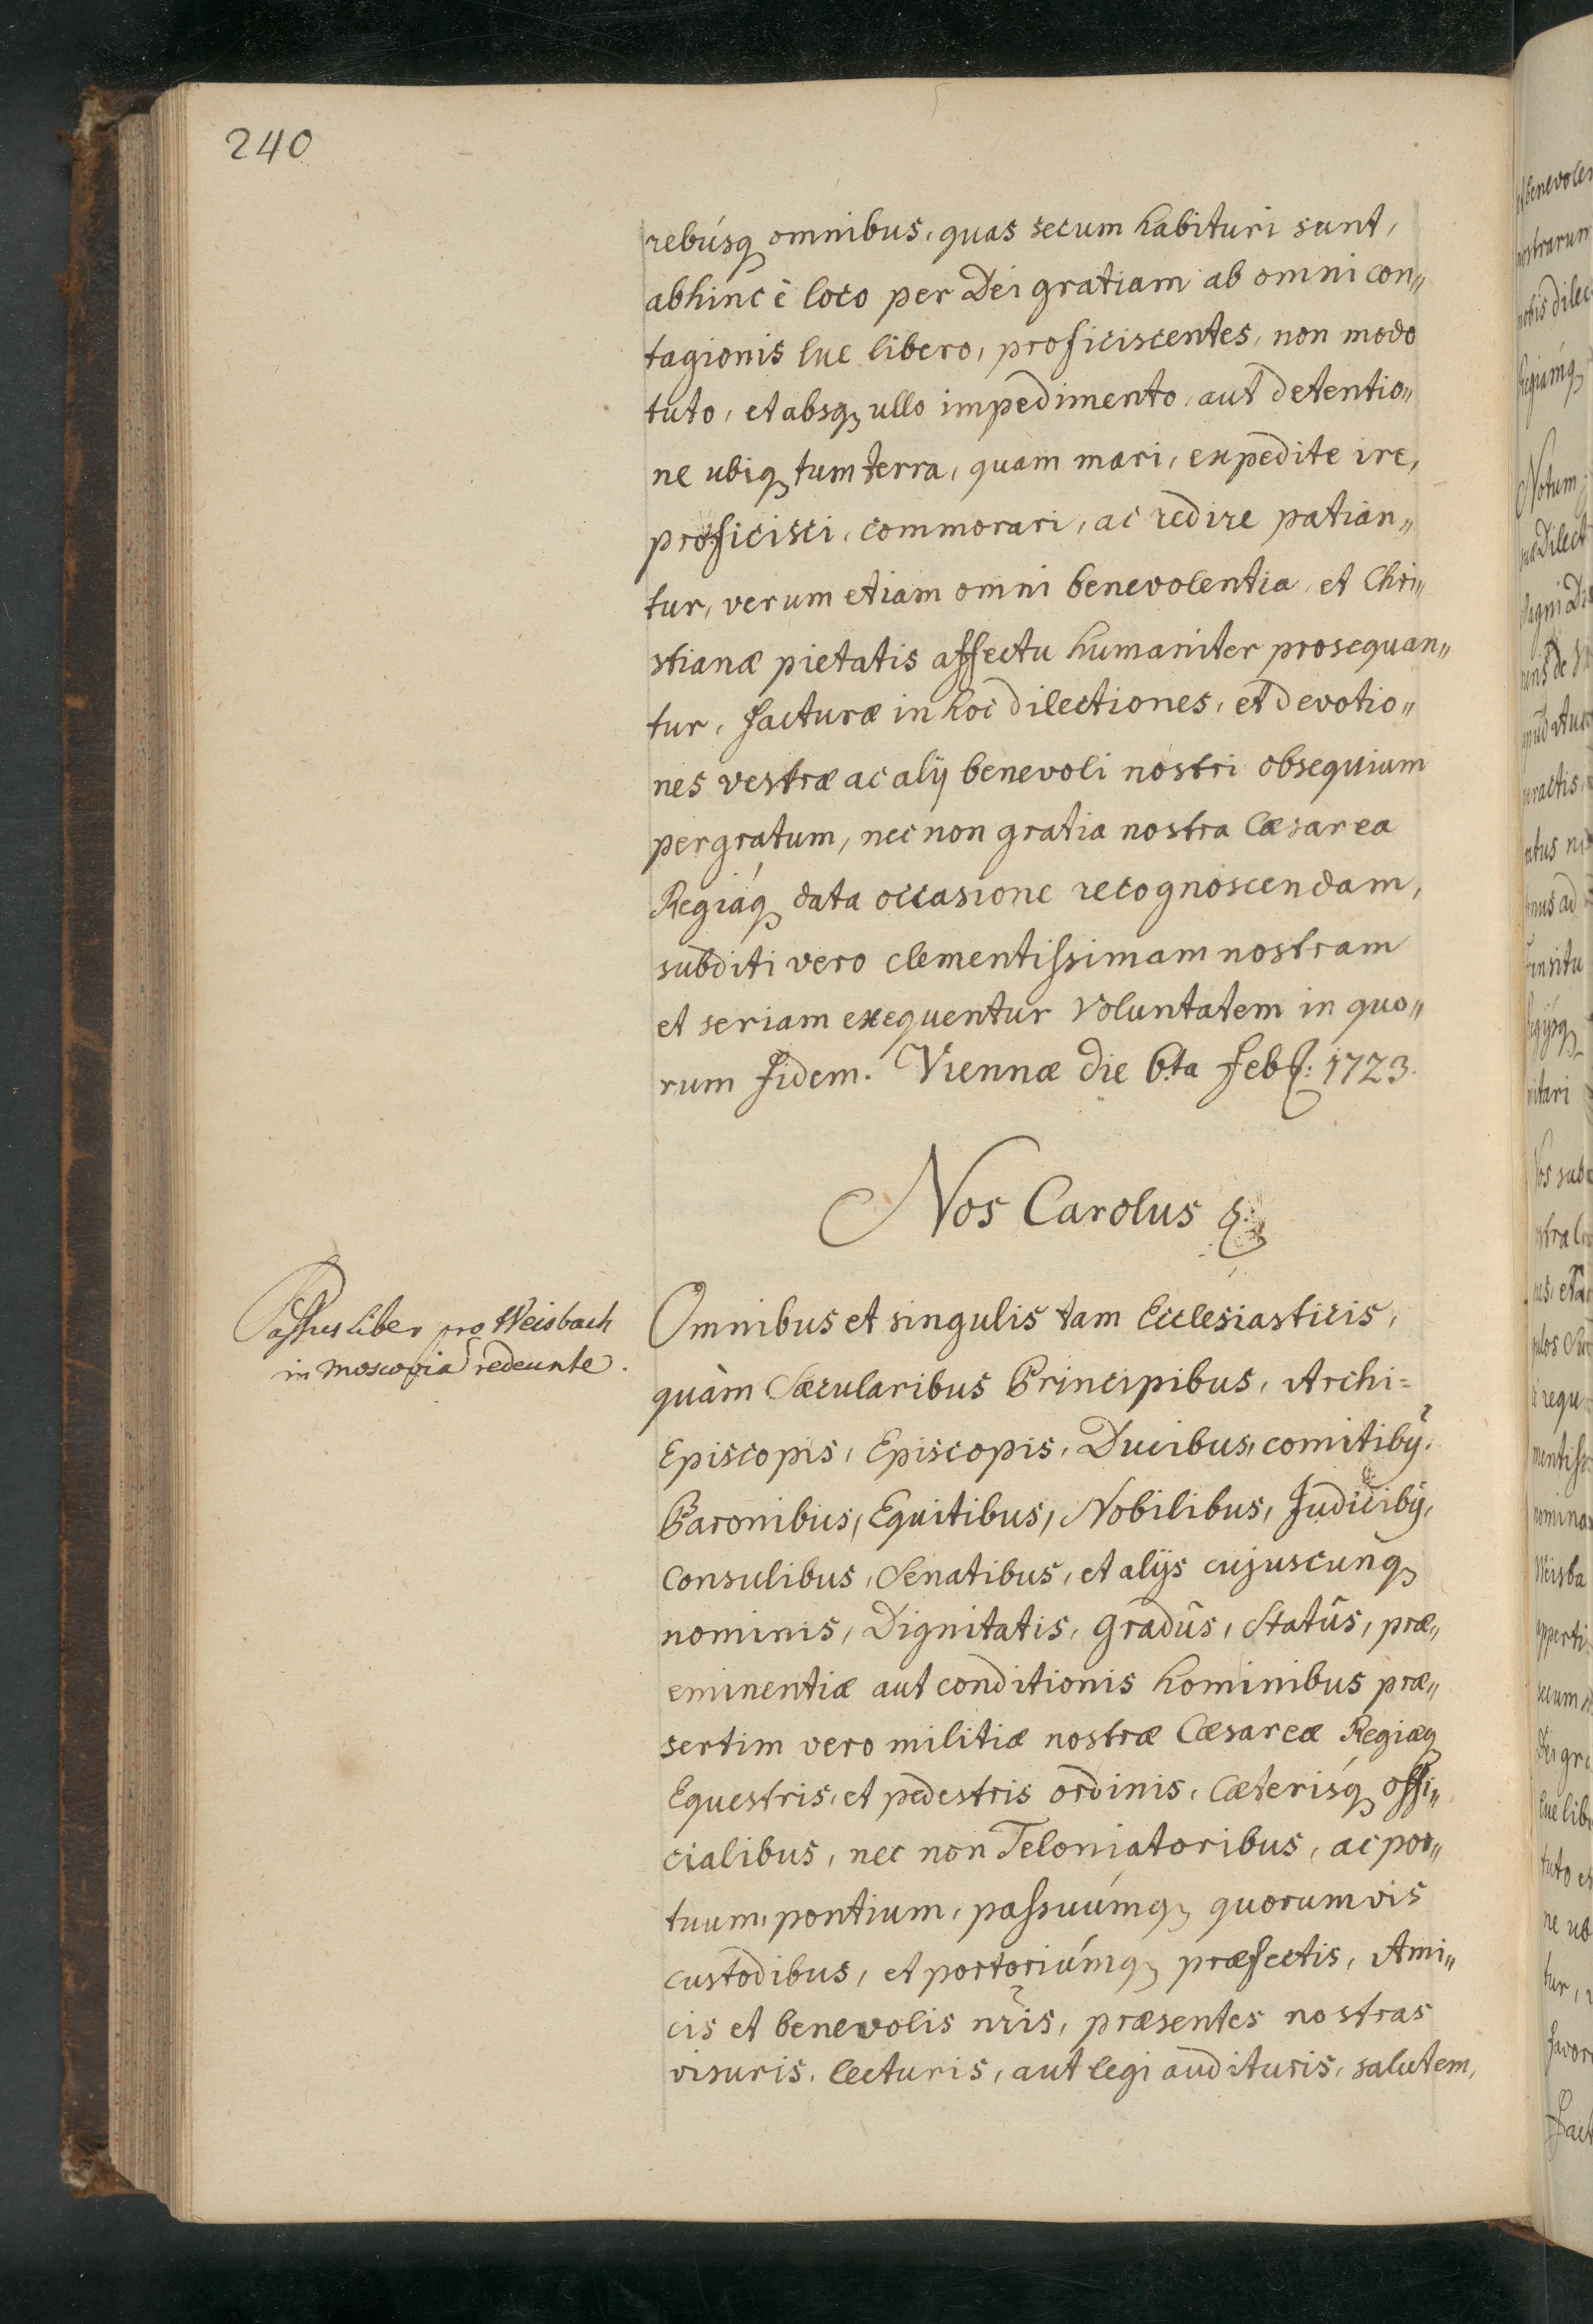 240
rebúsq omnibus, quas secum habituri sunt,
abhinc è loco per Dei gratiam ab omni con„
tagionis lue libero, proficiscentes, non modo
tuto, et absq ullo impedimento, aut detentio„
ne ubiq tum terra, quam mari, expedite ire,
proficisci, commorari, ac redire patian„
tur, verum etiam omni benevolentia, et Chri„
stianæ pietatis affectu humaniter prosequan„
tur, facturæ in hoc dilectiones, et devotio„
nes vestræ ac alÿ benevoli nostri obsequium
pergratum, nec non gratia nostra Cæsarea
Regiáq data occasione recognoscendam,
subditi vero clementissimam nostram
et seriam exequentur voluntatem in quo„
rum fidem. Viennæ die 6ta feb: 1723.
Nos Carolus
Passus liber pro Weisbach
in Moscovia redeunte.
Omnibus et singulis tam Ecclesiasticis,
quàm Sæcularibus Principibus, Archi=
Episcopis, Episcopis, Ducibus, comitibÿ,
Baronibus, Equitibus, Nobilibus, JudicibÿF,
Consulibus, Senatibus, et alÿs cujuscunq
nominis, Dignitatis, gradûs, Statûs, præ„
eminentiæ aut conditionis hominibus præ„
sertim vero militiæ nostræ Cæsareæ Regiæq
Equestris, et pedestris ordinis, Cæterisq offi„
cialibus, nec non Teloniatoribus, ac por„
tuum, pontium, passuúmq quorumvis
custodibus, et portoriúmq præfectis, Ami„
cis et benevolis nris, præsentes nostras
visuris, lecturis, aut legi audituris, salutem,